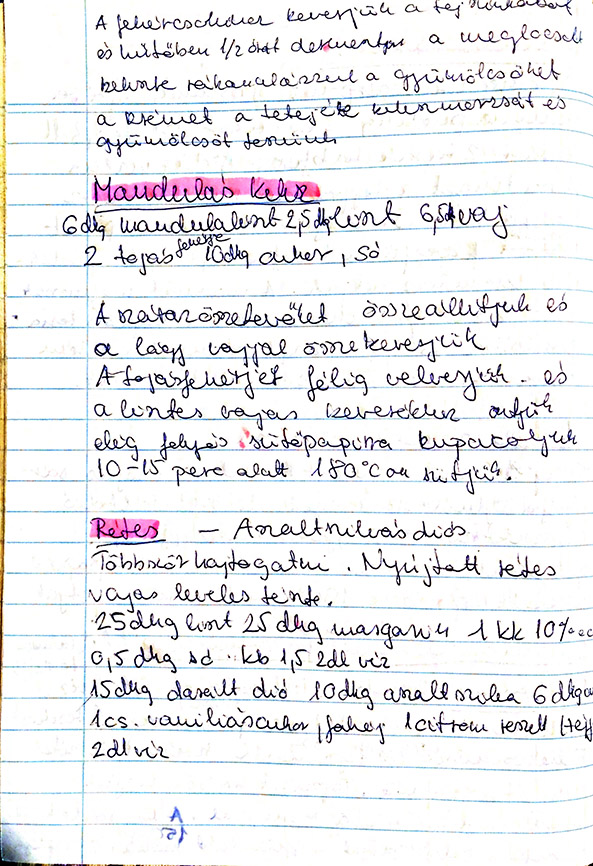 A fehércsokit keverjük a tej
és hűtőben 1/2 órát dermentjük a meglocsolt
kekszre rákanalazzuk a gyümölcsöket
a krémet a tetejére kekszmorzsát és
gyümölcsöt teszünk
Mandulás keksz
6dkg mandulaliszt 2,5dkg liszt 6,5dkg vaj
2 tojás fehérje 10dkg cukor, só
A száraz összetevőket összeállítjuk és
a lágy vajjal összekeverjük
A tojásfehérjét félig felverjük. és
a lisztes vajas keverékhez
elég folyós sütőpapírra kupacoljuk
10-15 perc alatt 180°C on sütjük.
Rétes - Aszaltszilvás diós
Többször hajtogatni. Nyújtott rétes
vajas leveles tészta.
25dkg liszt 25dkg margarin 1 kk 10%
0,5dkg só . kb 1,5 2dl víz
15dkg darált dió 10dkg aszalt szilva 6dkg
1cs. vaniliáscukor, fahéj 1citrom reszelt
2dl víz